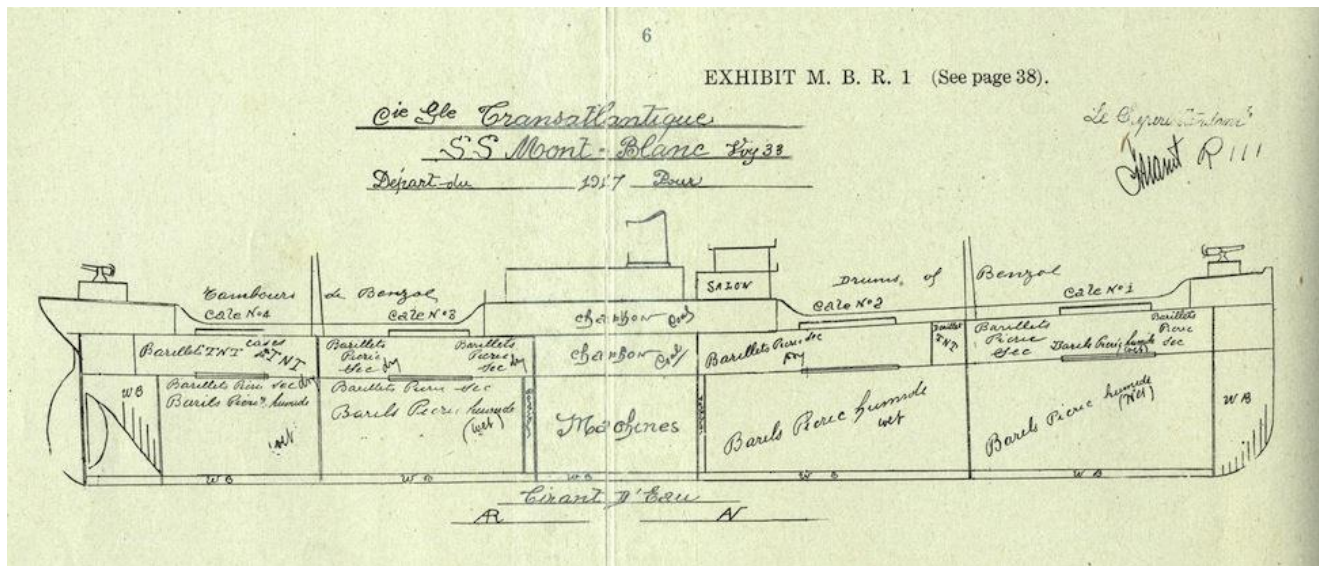 6
EXHIBIT M. B. R. 1 (See page 38).
Cie Gle Transatlantique
SS Mont-Blanc Voy 33
Départ du 1917 Pour
Tambours de Benzol
Drums of Benzol
Cale No 4
Cale No 3
SALON
Cale No 2
Cale No 1
charbon Coal
Barillet TNT
cases TNT
Barillets Picric Sec dry
Barillets Picric Sec dry
charbon Coal
Barillets Picric Sec dry
Barillet TNT
Barillets Picric Sec
Barils Picric humide (wet)
Barillets Picric Sec
WB
Barillets Picric Sec dry
Barils Picric humide
wet
Barillets Picric Sec
Barils Picric humide
(wet)
Machines
Barils Picric humide
wet
Barils Picric humide
(Wet)
WB
WB
WB
WB
WB
WB
Tirant D'Eau
AR
AV